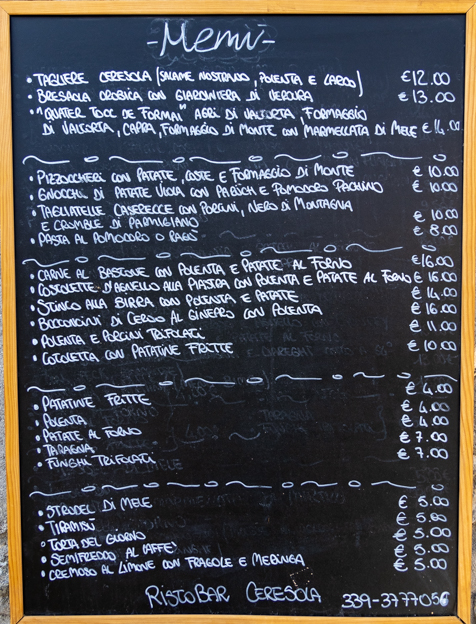 -Menù-
• TAGLIERE CERESOLA (SALAME NOSTRANO, POLENTA E LARDO) €12.00
• BRESAOLA OROBICA CON GIARDINIERA DI VERDURA €13.00
• "QUATER TOCC DE FORMAI" AGRÌ DI VALTORTA, FORMAGGIO
DI VALTORTA, CAPRA, FORMAGGIO DI MONTE CON MARMELLATA DI MELE €14.00
• PIZZOCCHERI CON PATATE, COSTE E FORMAGGIO DI MONTE €10.00
• GNOCCHI DI PATATE VIOLA CON PARÜCH E POMODORO PACHINO €10.00
• TAGLIATELLE CASERECCE CON PORCINI, NERO DI MONTAGNA
E CROMBLE DI PARMIGIANO €10.00
• PASTA AL POMODORO O RAGÙ €8.00
• CARNE AL BASTONE CON POLENTA E PATATE AL FORNO €16.00
• COSTOLETTE D'AGNELLO ALLA PIASTRA CON POLENTA E PATATE AL FORNO €16.00
• STINCO ALLA BIRRA CON POLENTA E PATATE €14.00
• BOCCONCINI DI CERVO AL GINEPRO CON POLENTA €16.00
• POLENTA E PORCINI TRIFOLATI €11.00
• COTOLETTA CON PATATINE FRITTE €10.00
• PATATINE FRITTE €4.00
• POLENTA €4.00
• PATATE AL FORNO €4.00
• TARAGNA €7.00
• FUNGHI TRIFOLATI €7.00
• STRUDEL DI MELE €5.00
• TIRAMISÙ €5.00
• TORTA DEL GIORNO €5.00
• SEMIFREDDO AL CAFFE' €5.00
• CREMOSO AL LIMONE CON FRAGOLE E MERINGA €5.00
RISTOBAR CERESOLA 339-3777056